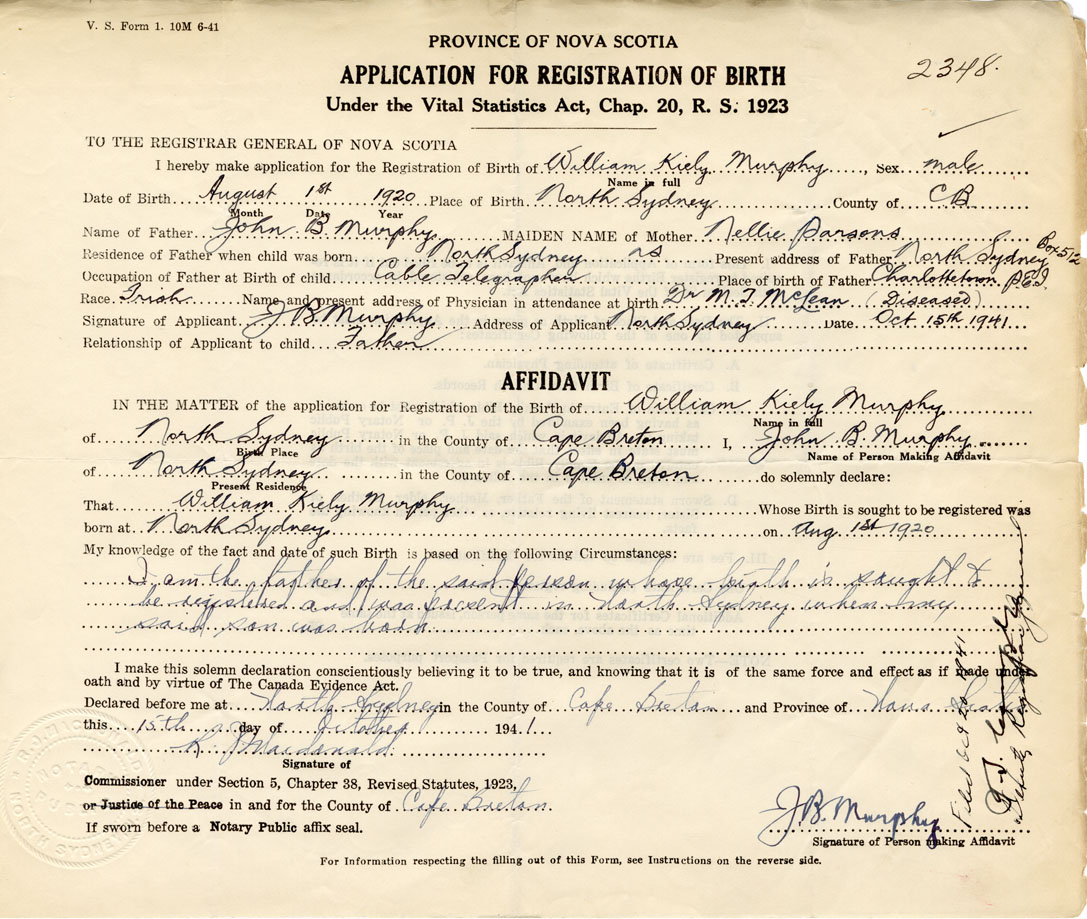 V. S. Form 1. 10M 6-41
PROVINCE OF NOVA SCOTIA
2348.
APPLICATION FOR REGISTRATION OF BIRTH
Under the Vital Statistics Act, Chap. 20, R. S. 1923
TO THE REGISTRAR GENERAL OF NOVA SCOTIA
I hereby make application for the Registration of Birth of William Kiely Murphy, Sex male
Name in full
Date of Birth August 1st 1920 Place of Birth North Sydney County of CB
Month Date Year
Name of Father John B. Murphy MAIDEN NAME of Mother Nellie Parsons
Residence of Father when child was born North Sydney ns Present address of Father North Sydney Box 512
Occupation of Father at Birth of child Cable Telegrapher Place of birth of Father Charlottetown P.E.I.
Race Irish Name and present address of Physician in attendance at birth Dr M. T. McLean (Diseased)
Signature of Applicant J B Murphy Address of Applicant North Sydney Date Oct 15th 1941
Relationship of Applicant to child Father
AFFIDAVIT
IN THE MATTER of the application for Registration of the Birth of William Kiely Murphy
Name in full
of North Sydney in the County of Cape Breton I, John B. Murphy
Birth Place Name of Person Making Affidavit
of North Sydney in the County of Cape Breton do solemnly declare:
Present Residence
That William Kiely Murphy Whose Birth is sought to be registered was
born at North Sydney on Aug 1st 1920
My knowledge of the fact and date of such Birth is based on the following Circumstances:
I am the father of the said person whose birth is sought to
be registered and was present in North Sydney when my
said son was born.
I make this solemn declaration conscientiously believing it to be true, and knowing that it is of the same force and effect as if made under
oath and by virtue of The Canada Evidence Act.
Declared before me at North Sydney in the County of Cape Breton and Province of Nova Scotia
this 15th day of October 1941.
Macdonald
Signature of
Commissioner under Section 5, Chapter 38, Revised Statutes, 1923,
or Justice of the Peace in and for the County of Cape Breton.
If sworn before a Notary Public affix seal.
J.B. Murphy
Signature of Person making Affidavit
For Information respecting the filling out of this Form, see Instructions on the reverse side.
Filed Oct 20 1941
Deputy Registrar General